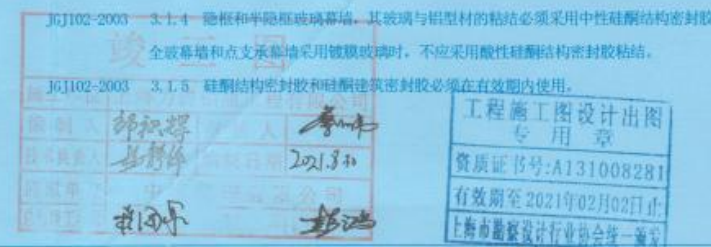 JGJ102-2003 3.1.4 隐框和半隐框玻璃幕墙，其玻璃与铝型材的粘结必须采用中性硅酮结构密封胶
全玻幕墙和点支承幕墙采用镀膜玻璃时，不应采用酸性硅酮结构密封胶粘结。
JGJ102-2003 3.1.5 硅酮结构密封胶和硅酮建筑密封胶必须在有效期内使用。
竣工图
编制人
技术负责人 编制日期 2021.8.30
监理单位
工程施工图设计出图
专用章
资质证书号:A131008281
有效期至2021年02月02日止
上海市勘察设计行业协会统一颁发